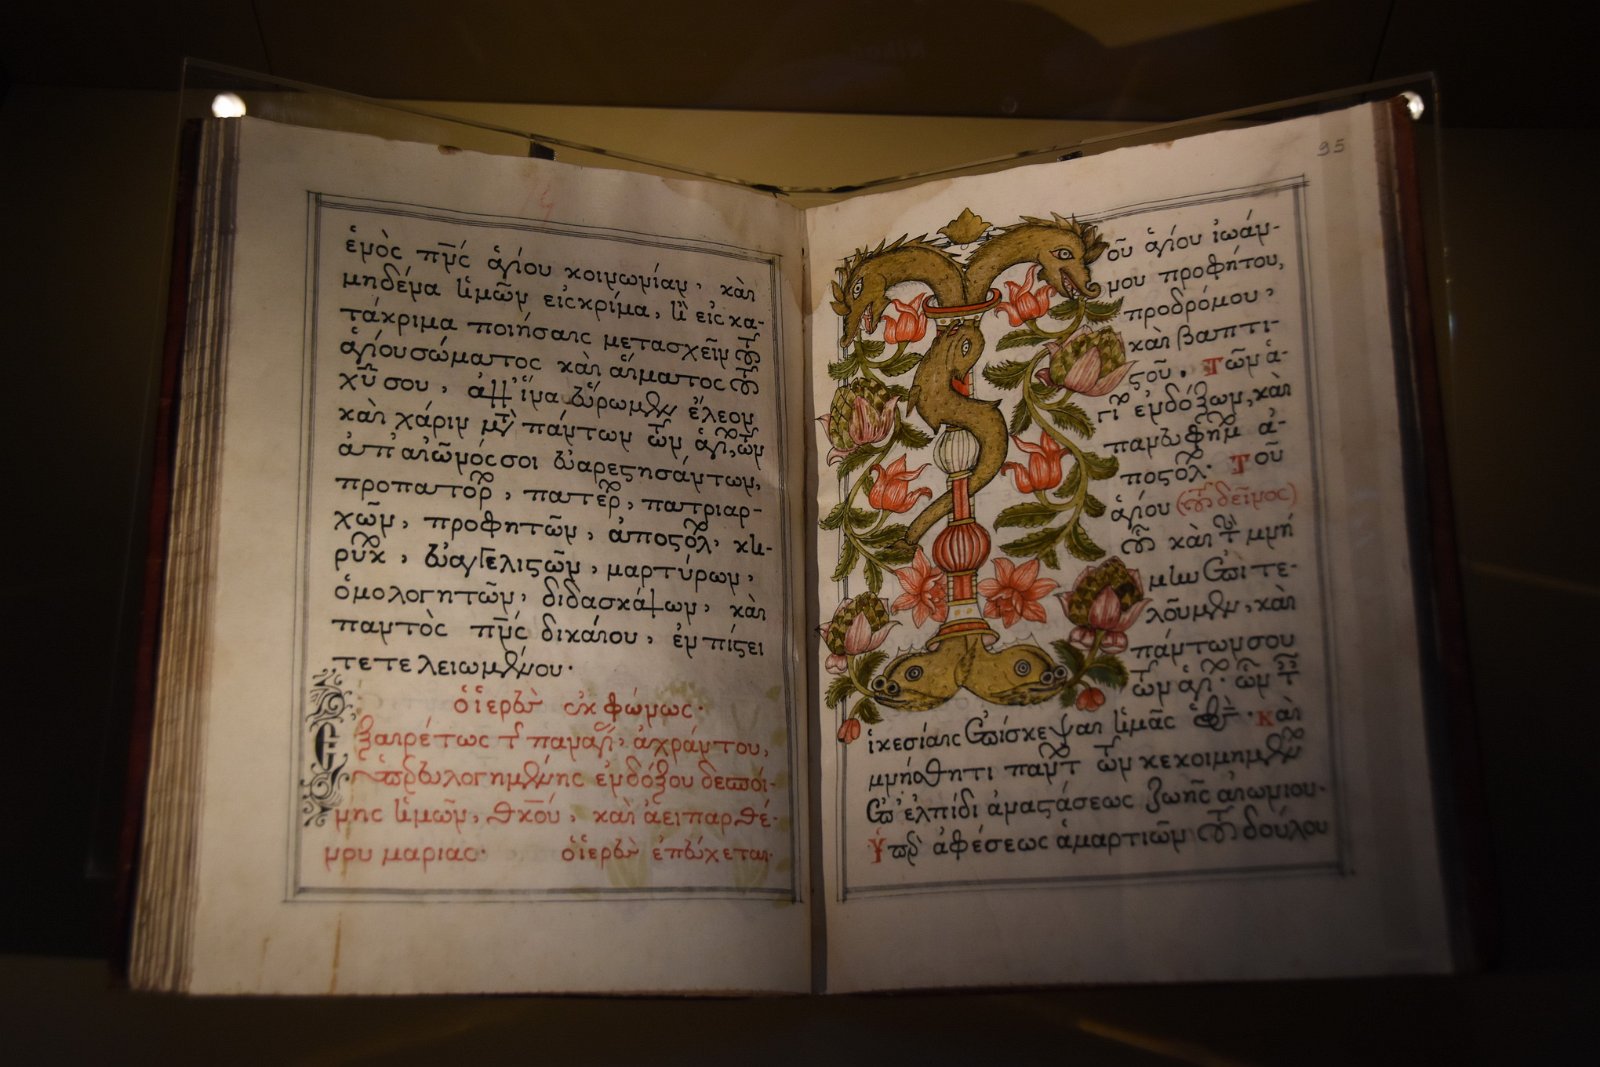 ἑνὸς πν̅ς ἁγίου κοινωνίαν, καὶ
μηδένα ἡμῶν εἰς κρίμα, ἢ εἰς κα-
τάκριμα ποιήσαις μετασχεῖν τοῦ
ἁγίου σώματος καὶ αἵματος τοῦ
χῦ σου, ἀλλ' ἵνα εὕρωμεν ἔλεον
καὶ χάριν μετὰ πάντων τῶν ἁγίων, τῶν
ἀπ' αἰῶνός σοι εὐαρεστησάντων,
προπατόρ, πατέρ, πατριαρ-
χῶν, προφητῶν, ἀποστόλ, κη-
ρύκ, εὐαγγελιστῶν, μαρτύρων,
ὁμολογητῶν, διδασκάλων, καὶ
παντὸς πν̅ς δικαίου, ἐν πίστει
τετελειωμένου.
ὁ ἱερεὺς ἐκφώνως.
Ἐξαιρέτως τῆς παναγί, ἀχράντου,
ὑπερευλογημένης ἐνδόξου δεσποί-
νης ἡμῶν, θκ̅ου, καὶ ἀειπαρθέ-
νου μαρίας. ὁ ἱερεὺς ἐπεύχεται.
95
Τοῦ ἁγίου ἰωάν-
νου προφήτου,
προδρόμου,
καὶ βαπτι-
στοῦ. τῶν ἁ-
γί ἐνδόξων, καὶ
πανευφήμ ἀ-
ποστόλ. τοῦ
ἁγίου (τοῦ δεῖνος)
οὗ καὶ τὴν μνή
μην ἐπιτε-
λοῦμεν, καὶ
πάντων σου
τῶν ἁγί. ὧν ταῖς
ἱκεσίαις ἐπίσκεψαι ἡμᾶς ὁ θς̅. καὶ
μνήσθητι πάντ τῶν κεκοιμημένων
ἐπ' ἐλπίδι ἀναστάσεως ζωῆς αἰωνίου.
Ὑπὲρ ἀφέσεως ἁμαρτιῶν τοῦ δούλου